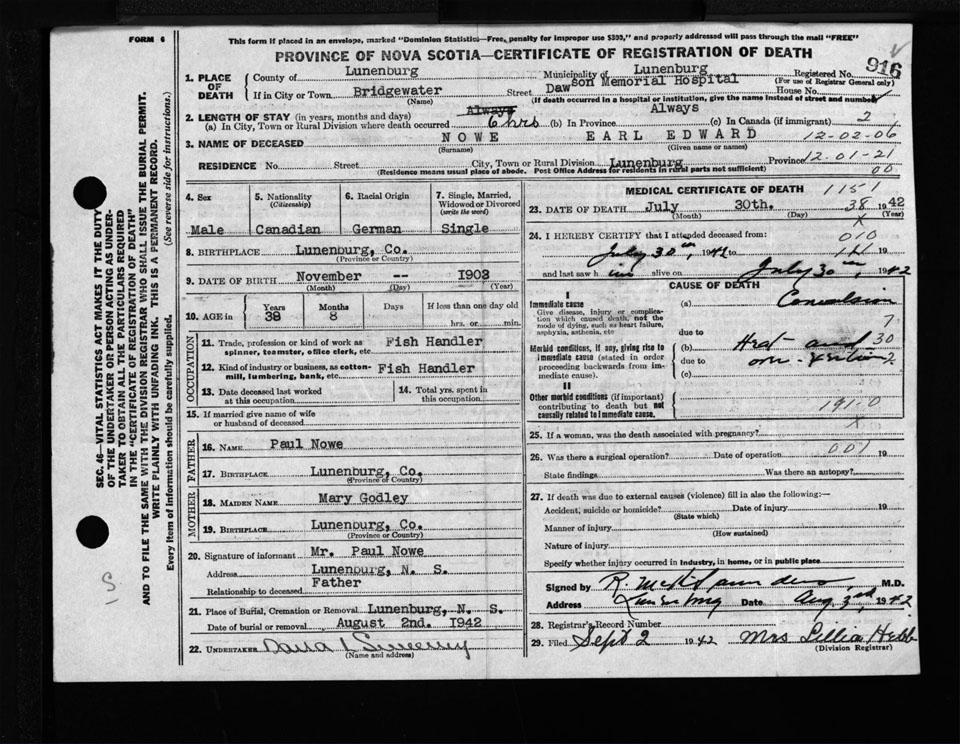 FORM 6
This form if placed in an envelope, marked "Dominion Statistics—Free, penalty for improper use $300," and properly addressed will pass through the mail "FREE"
PROVINCE OF NOVA SCOTIA—CERTIFICATE OF REGISTRATION OF DEATH
916
1. PLACE OF DEATH
County of Lunenburg Municipality of Lunenburg Registered No.
(For use of Registrar General only)
If in City or Town Bridgewater Street Dawson Memorial Hospital House No.
(Name) (If death occurred in a hospital or institution, give the name instead of street and number)
2. LENGTH OF STAY (in years, months and days) Always Always
(a) In City, Town or Rural Division where death occurred 6 hrs (b) In Province (c) In Canada (if immigrant) 2
3. NAME OF DECEASED NOWE EARL EDWARD 12-02-06
(Surname) (Given name or names)
RESIDENCE No. Street City, Town or Rural Division Lunenburg Province 12-01-21
(Residence means usual place of abode. Post Office Address for residents in rural parts not sufficient) 00
4. Sex
Male
5. Nationality (Citizenship)
Canadian
6. Racial Origin
German
7. Single, Married, Widowed or Divorced (write the word)
Single
8. BIRTHPLACE Lunenburg, Co.
(Province or Country)
9. DATE OF BIRTH November -- 1903
(Month) (Day) (Year)
10. AGE in Years Months Days If less than one day old
38 8 hrs. or min.
OCCUPATION
11. Trade, profession or kind of work as spinner, teamster, office clerk, etc. Fish Handler
12. Kind of industry or business, as cotton-mill, lumbering, bank, etc. Fish Handler
13. Date deceased last worked at this occupation
14. Total yrs. spent in this occupation
15. If married give name of wife or husband of deceased
FATHER
16. NAME Paul Nowe
17. BIRTHPLACE Lunenburg, Co.
(Province or Country)
MOTHER
18. MAIDEN NAME Mary Godley
19. BIRTHPLACE Lunenburg, Co.
(Province or Country)
20. Signature of informant Mr. Paul Nowe
Address Lunenburg, N. S.
Relationship to deceased Father
21. Place of Burial, Cremation or Removal Lunenburg, N. S.
Date of burial or removal August 2nd. 1942
22. UNDERTAKER
(Name and address)
MEDICAL CERTIFICATE OF DEATH 1151
23. DATE OF DEATH July 30th. 38 1942
(Month) (Day) (Year)
x
24. I HEREBY CERTIFY that I attended deceased from: 010
July 30th, 19 to
and last saw him alive on July 30th, 1942
CAUSE OF DEATH
I
Immediate cause
Give disease, injury or complication which caused death, not the mode of dying, such as heart failure, asphyxia, asthenia, etc
(a) Convulsion
7
due to
Morbid conditions, if any, giving rise to immediate cause (stated in order proceeding backwards from immediate cause).
(b) Heat and 30
due to over-exertion 2
(c)
II
Other morbid conditions (if important) contributing to death but not causally related to immediate cause.
191-0
x
25. If a woman, was the death associated with pregnancy?
26. Was there a surgical operation? Date of operation 001 19
State findings Was there an autopsy?
27. If death was due to external causes (violence) fill in also the following:—
Accident, suicide or homicide? Date of injury 19
(State which)
Manner of injury
(How sustained)
Nature of injury
Specify whether injury occurred in industry, in home, or in public place
Signed by M.D.
Address Lunenburg Date Aug 3rd, 1942
28. Registrar's Record Number
29. Filed Sept 2 1942 Mrs Lillian Hebb
(Division Registrar)
SEC. 46—VITAL STATISTICS ACT MAKES IT THE DUTY
OF THE UNDERTAKER OR PERSON ACTING AS UNDERTAKER
TO OBTAIN ALL THE PARTICULARS REQUIRED
IN THE "CERTIFICATE OF REGISTRATION OF DEATH"
AND TO FILE THE SAME WITH THE DIVISION REGISTRAR WHO SHALL ISSUE THE BURIAL PERMIT.
WRITE PLAINLY WITH UNFADING INK. THIS IS A PERMANENT RECORD.
Every item of information should be carefully supplied. (See reverse side for instructions.)
S